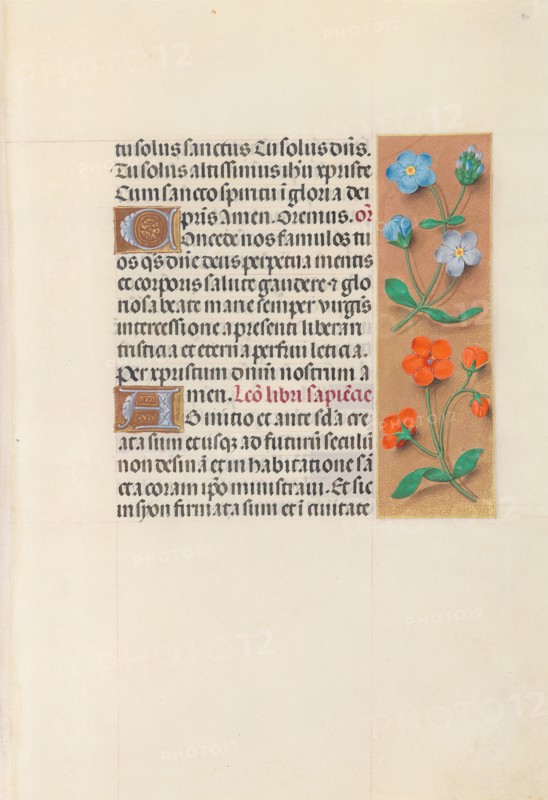 tu solus sanctus Tu solus dn̄s.
Tu solus altissimus ihū xpriste
Cum sancto spiritu ī gloria dei
pr̄is Amen. Oremus. or̄
Concede nos famulos tu
os q̄s dn̄e deus perpetua mentis
et corporis salute gaudere ⁊ glo
riosa beate marie semper virgīs
intercessione a presenti liberari
tristicia et eterna perfrui leticia.
Per xpristum dn̄m nostrum a
men. Lcō libri sapiēcie
AB initio et ante sc̄la cre
ata sum et usqz ad futurū seculū
non desinā et in habitatione sā
cta coram ipō ministravi. Et sic
in syon firmata sum et ī civitate
PHOTO12